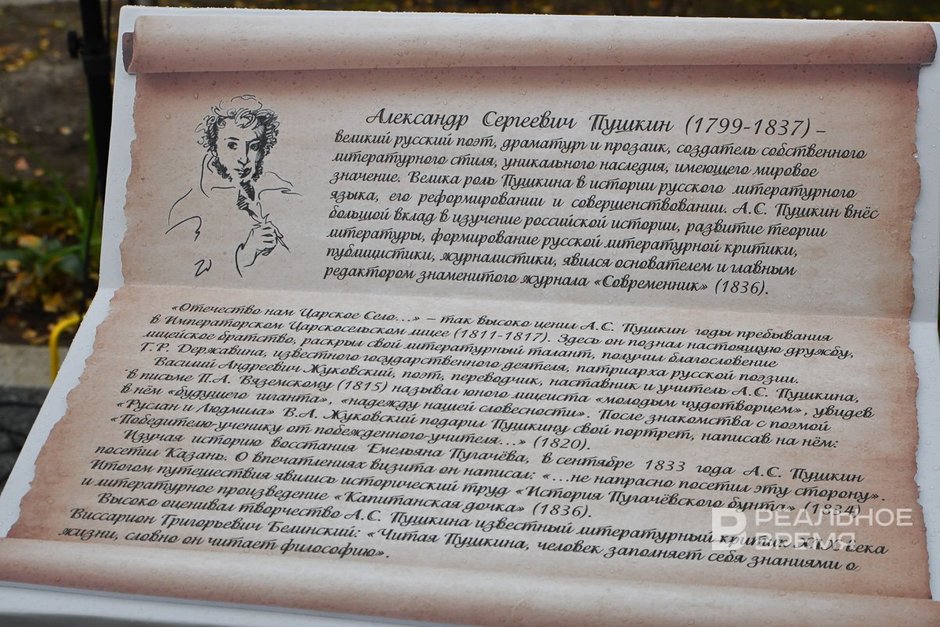 Александр Сергеевич Пушкин (1799-1837) –
великий русский поэт, драматург и прозаик, создатель собственного
литературного стиля, уникального наследия, имеющего мировое
значение. Велика роль Пушкина в истории русского литературного
языка, его реформировании и совершенствовании. А.С. Пушкин внёс
большой вклад в изучение российской истории, развитие теории
литературы, формирование русской литературной критики,
публицистики, журналистики, явился основателем и главным
редактором знаменитого журнала «Современник» (1836).
«Отечество нам Царское Село…» – так высоко ценил А.С. Пушкин годы пребывания
в Императорском Царскосельском лицее (1811-1817). Здесь он познал настоящую дружбу,
лицейское братство, раскрыл свой литературный талант, получил благословение
Г.Р. Державина, известного государственного деятеля, патриарха русской поэзии.
Василий Андреевич Жуковский, поэт, переводчик, наставник и учитель А.С. Пушкина,
в письме П.А. Вяземскому (1815) называл юного лицеиста «молодым чудотворцем», увидев
в нём «будущего гиганта», «надежду нашей словесности». После знакомства с поэмой
«Руслан и Людмила» В.А. Жуковский подарил Пушкину свой портрет, написав на нём:
«Победителю-ученику от побежденного-учителя…» (1820).
Изучая историю восстания Емельяна Пугачёва, в сентябре 1833 года А.С. Пушкин
посетил Казань. О впечатлениях визита он написал: «…не напрасно посетил эту сторону».
Итогом путешествия явились исторический труд «История Пугачёвского бунта» (1834)
и литературное произведение «Капитанская дочка» (1836).
Высоко оценивал творчество А.С. Пушкина известный литературный критик XIX века
Виссарион Григорьевич Белинский: «Читая Пушкина, человек заполняет себя знаниями о
жизни, словно он читает философию».
РЕАЛЬНОЕ
ВРЕМЯ